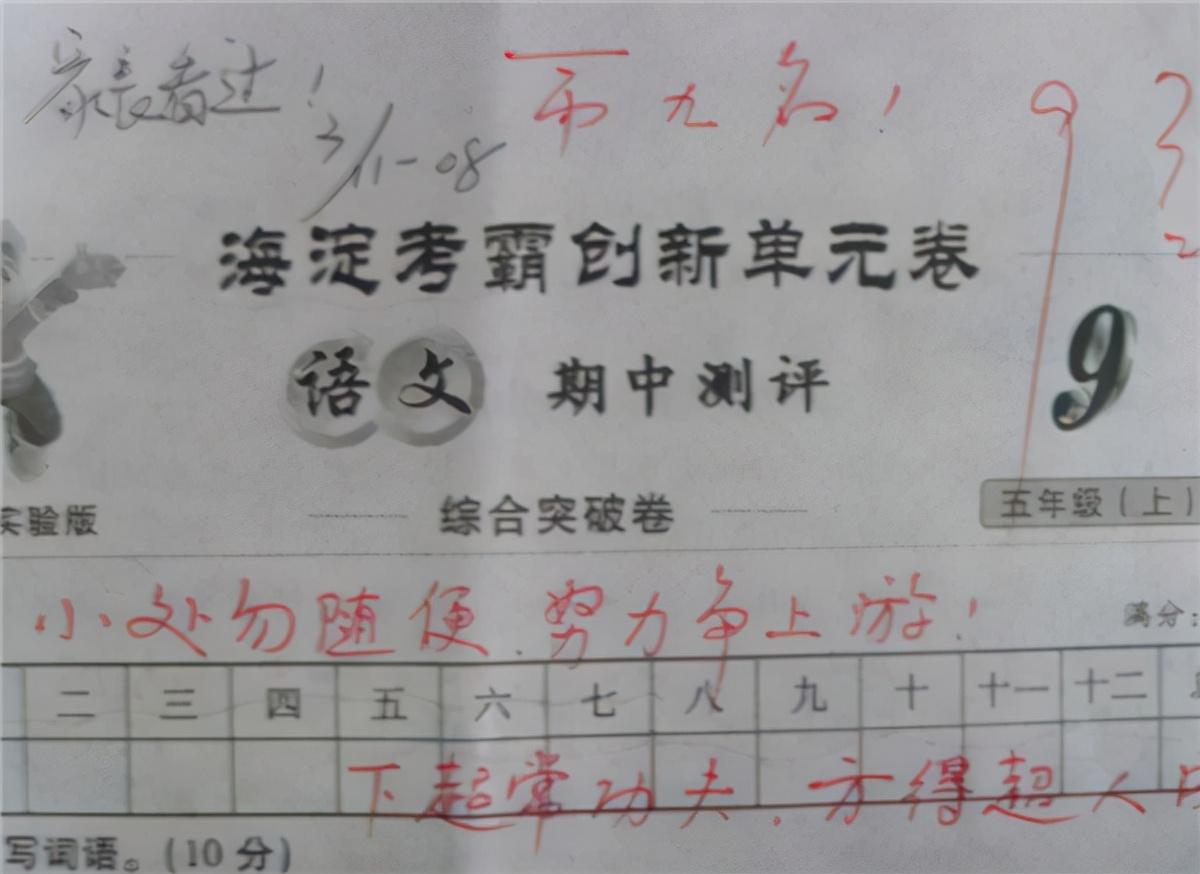 家长看过! 九名! 93
3/11-08
海淀考霸创新单元卷
语文 期中测评 9
实验版 综合突破卷 五年级(上)
小处勿随便.努力争上游! 满分:
二 三 四 五 六 七 八 九 十 十一 十二
下超常功夫.方得超人
写词语。(10分)